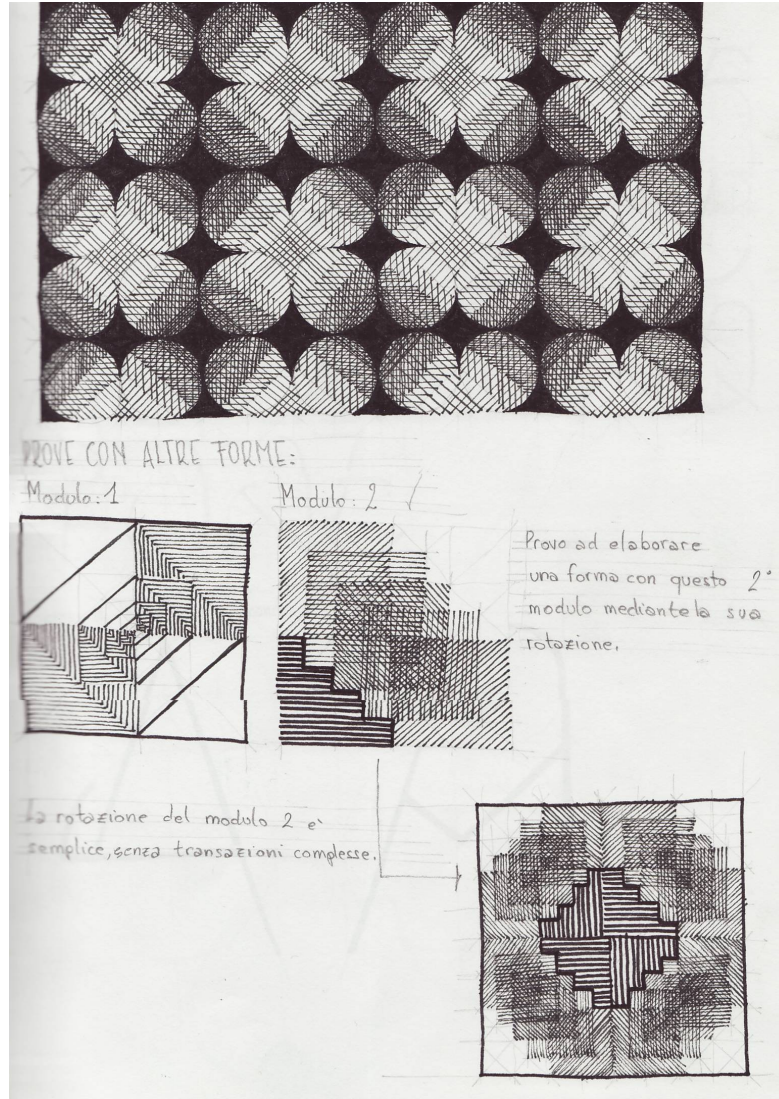 PROVE CON ALTRE FORME:
Modulo: 1
Modulo: 2
Provo ad elaborare
una forma con questo 2°
modulo mediante la sua
rotazione.
La rotazione del modulo 2 e'
semplice, senza transazioni complesse.